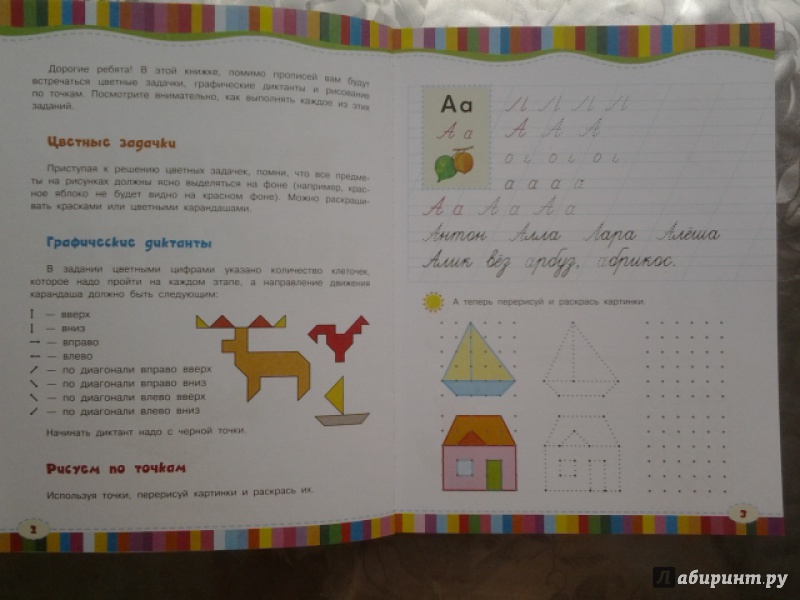 Дорогие ребята! В этой книжке, помимо прописей вам будут
встречаться цветные задачки, графические диктанты и рисование
по точкам. Посмотрите внимательно, как выполнять каждое из этих
заданий.
Цветные задачки
Приступая к решению цветных задачек, помни, что все предме-
ты на рисунках должны ясно выделяться на фоне (например, крас-
ное яблоко не будет видно на красном фоне). Можно раскраши-
вать красками или цветными карандашами.
Графические диктанты
В задании цветными цифрами указано количество клеточек,
которое надо пройти на каждом этапе, а направление движения
карандаша должно быть следующим:
— вверх
— вниз
— вправо
— влево
— по диагонали вправо вверх
— по диагонали вправо вниз
— по диагонали влево вверх
— по диагонали влево вниз
Начинать диктант надо с черной точки.
Рисуем по точкам
Используя точки, перерисуй картинки и раскрась их.
2
Аа
А а
А А А
а а а а
А а А а А а
Антон Алла Лара Алёша
Алик вёз арбуз, абрикос.
А теперь перерисуй и раскрась картинки.
3
Лабиринт.ру